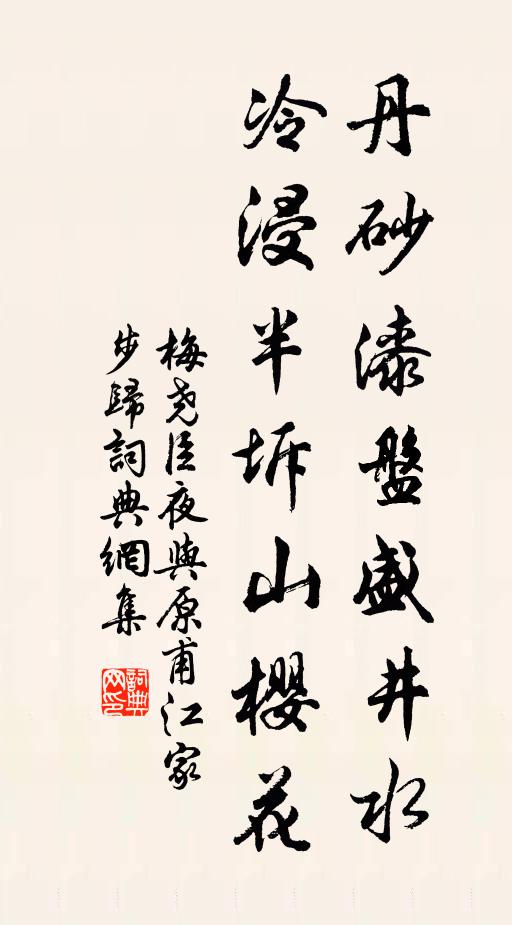 丹砂漆盤盛井水
冷浸半坼山櫻花
梅堯臣夜與原甫江家
步歸詞典網集
詞典網印